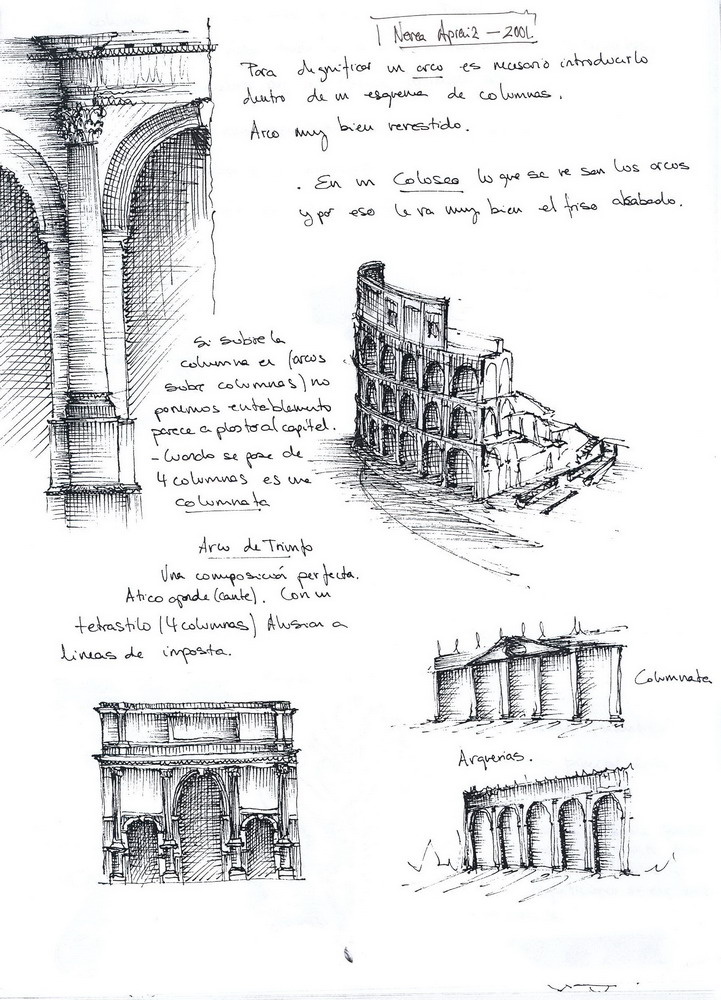 Nerea Apraiz - 2001.
Para dignificar un arco es necesario introducirlo
dentro de un esquema de columnas.
Arco muy bien revestido.
. En un Coloseo lo que se ve son los arcos
y por eso le va muy bien el friso
Si sobre la
columna en (arcos
sobre columnas) no
ponemos entablamento
parece a al capitel.
- Cuando se pasa de
4 columnas es una
columnata
Arco de Triunfo
Una composición perfecta.
Atico grande (cante). Con un
tetrastilo (4 columnas) Alusion a
lineas de imposta.
Columnata
Arquerias.